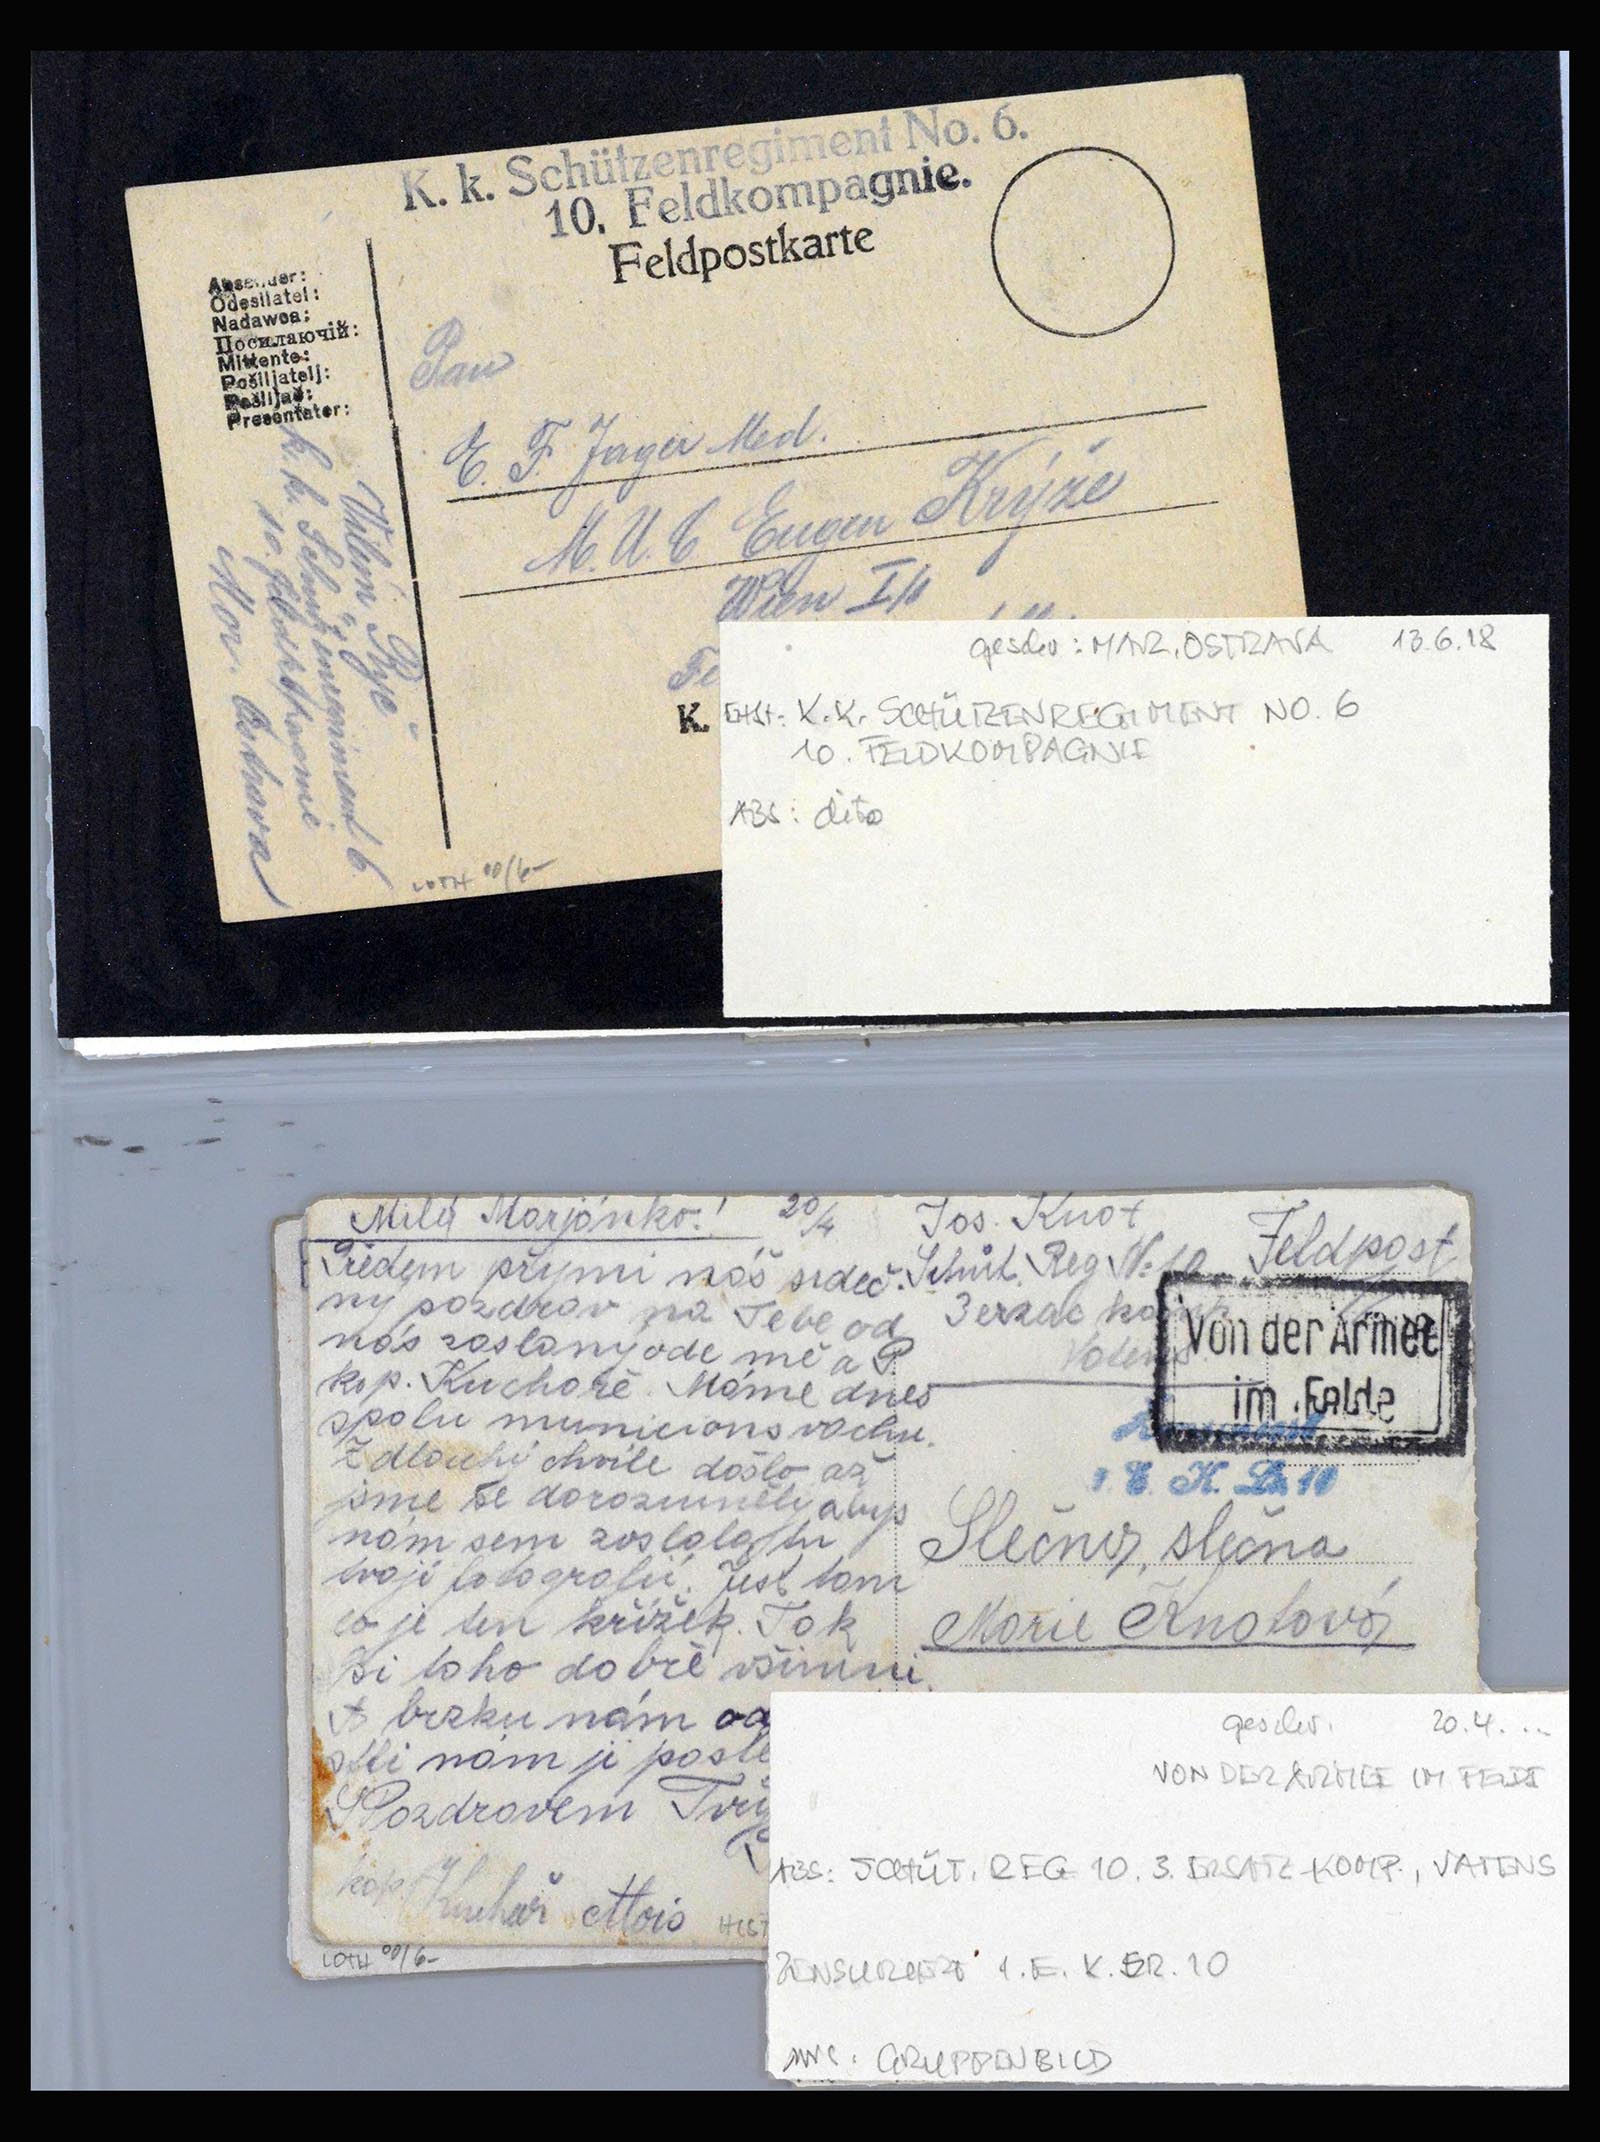 K. k. Schützenregiment No. 6.
10. Feldkompagnie.
Feldpostkarte
Absender:
Odesílatel:
Nadawca:
Посилаючій:
Mittente:
Pošiljatelj:
Pošiljač:
Presentater:
Vilém
k. k. Schützenregiment 6.
10. Feldkompanie
Mor. Ostrava
Pan
E. F. Jäger Med.
M. U. C. Eugen Krýže
Wien
K.
LOTH 00/6-
geschr: MÄR. OSTRAVA 13.6.18
K.K. SCHÜTZENREGIMENT NO. 6
10. FELDKOMPAGNIE
ABS: dito
Milá Marjánko! 20/4
Předem přijmi náš srdeč-
ný pozdrav na Tebe od
nás zaslaný ode mě a
kop. Kuchaře. Máme dnes
spolu municions vachu.
Z dlouhý chvíle došlo až
jsme se dorozuměly abys
nám sem zaslala tu
tvojí fotografii. Just tam
co je ten křížek. Tak
si toho dobře všimni
brzku nám od
nám ji pošle
S Pozdravem Tvůj
kop. Kuchař Alois
LOTH 00/6-
Jos. Knot
Schüt. Reg N: 10
3 erzac komp
Vatens
Feldpost
Von der Armee
im Felde
Slečna, slečna
Marie Knotová
geschr. 20.4. ...
VON DER ARMEE IM FELDE
ABS: SCHÜT. REG 10. 3. ERSATZ-KOMP., VATENS
ZENSURIERT 1. E. K. SR. 10
GRUPPENBILD